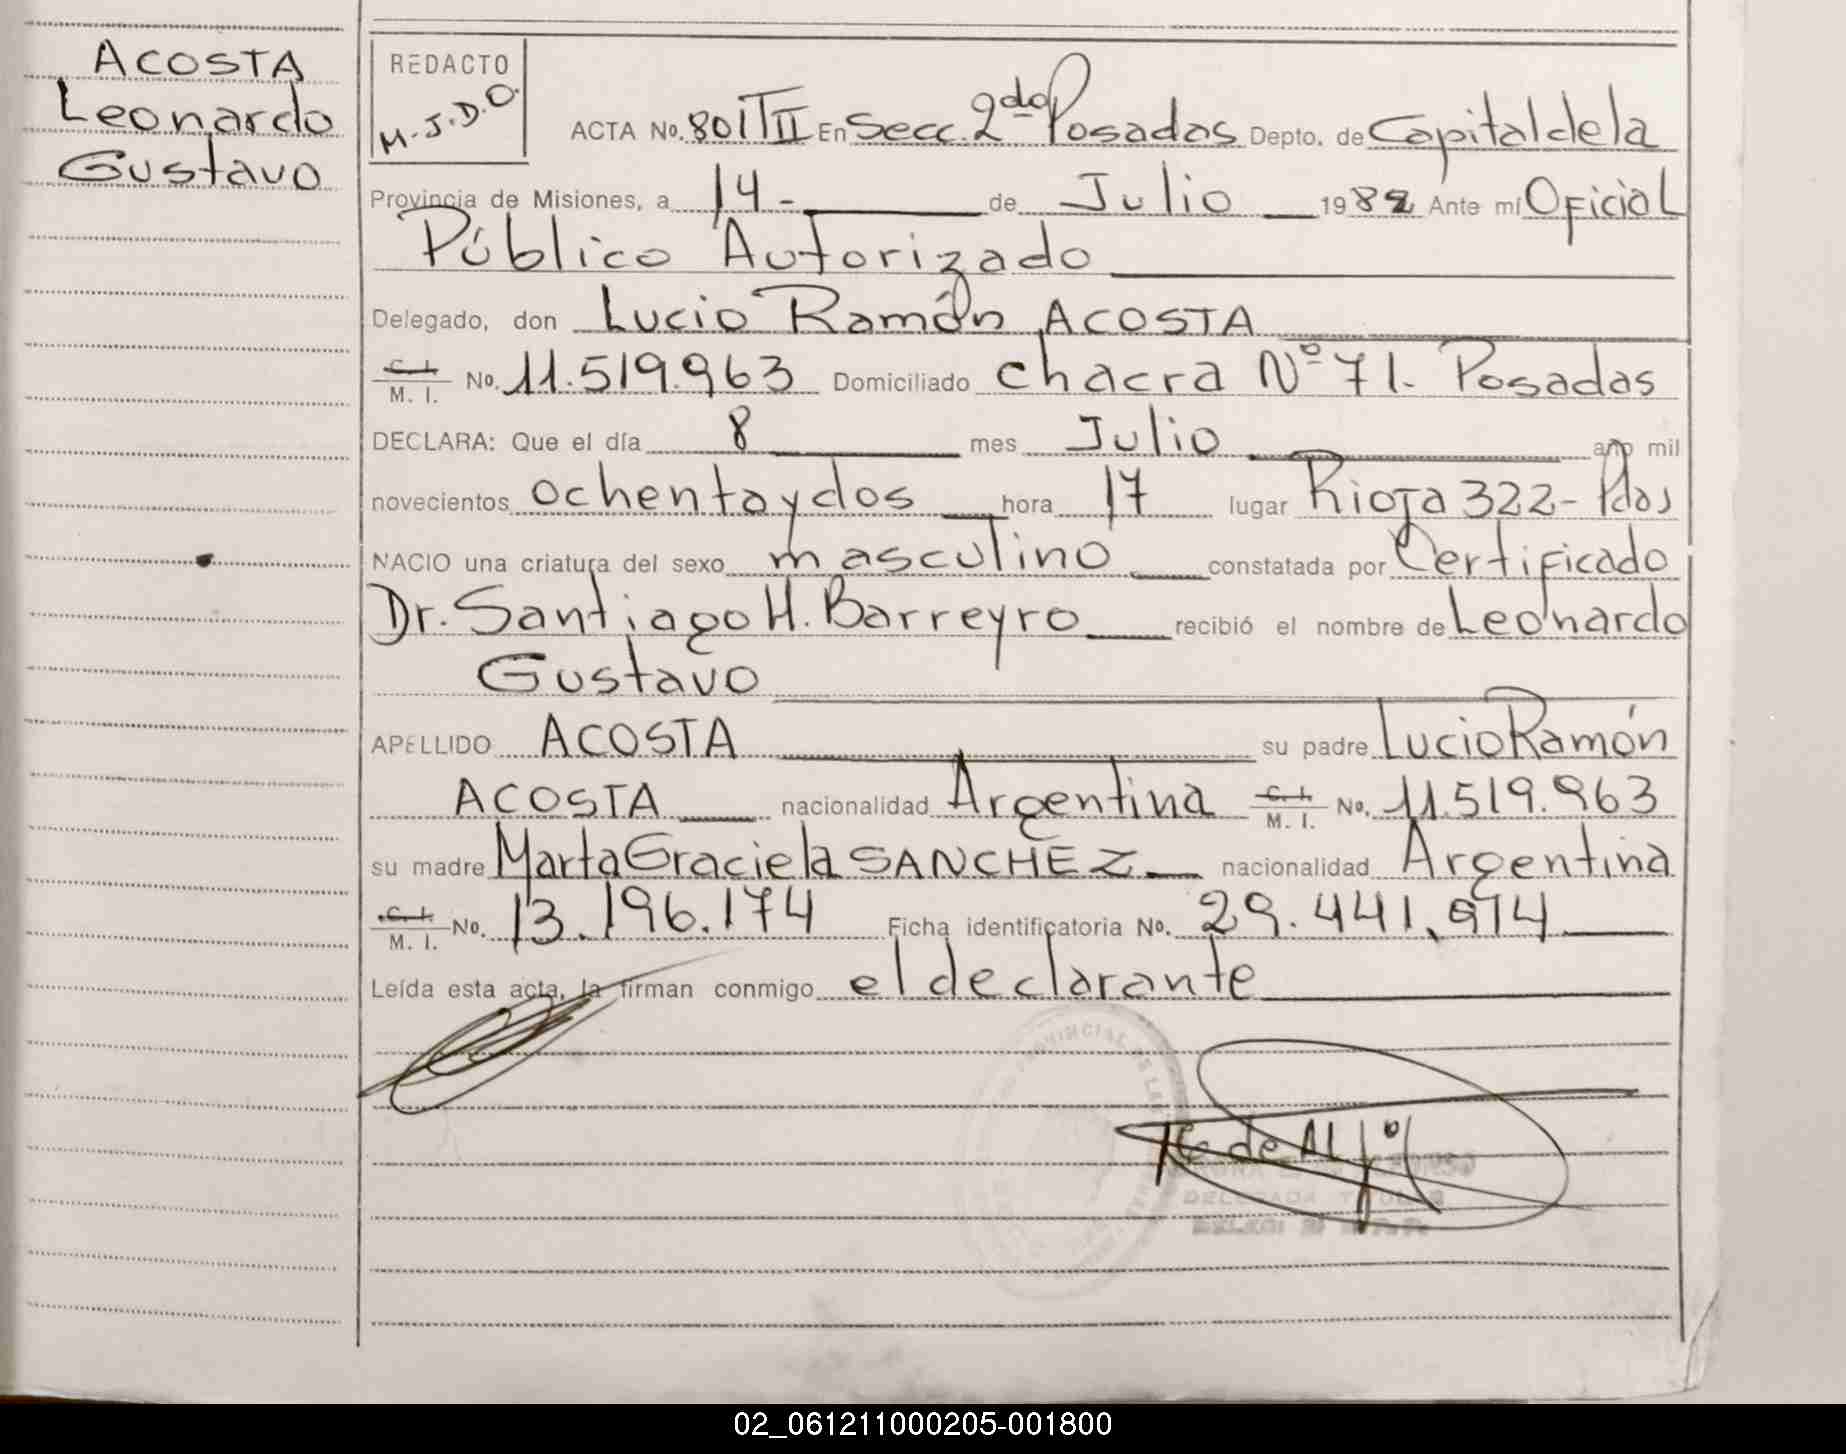 ACOSTA
Leonardo
Gustavo
REDACTO
M.J.D.O.
ACTA No. 801 T II En Secc. 2da Posadas Depto. de Capital de la
Provincia de Misiones, a 14- de Julio 1982 Ante mí Oficial
Público Autorizado
Delegado, don Lucio Ramón ACOSTA
C. I. / M. I. No. 11.519.963 Domiciliado chacra Nº 71. Posadas
DECLARA: Que el día 8 mes Julio año mil
novecientos ochenta y dos hora 17 lugar Rioja 322- Pdas
NACIO una criatura del sexo masculino constatada por Certificado
Dr. Santiago H. Barreyro recibió el nombre de Leonardo
Gustavo
APELLIDO ACOSTA su padre Lucio Ramón
ACOSTA nacionalidad Argentina C. I. / M. I. No. 11.519.963
su madre Marta Graciela SANCHEZ nacionalidad Argentina
C. I. / M. I. No. 13.196.174 Ficha identificatoria No. 29.441.974
Leída esta acta, la firman conmigo el declarante
PROVINCIAL DE LAS
DELEGADA TITULAR
02_061211000205-001800